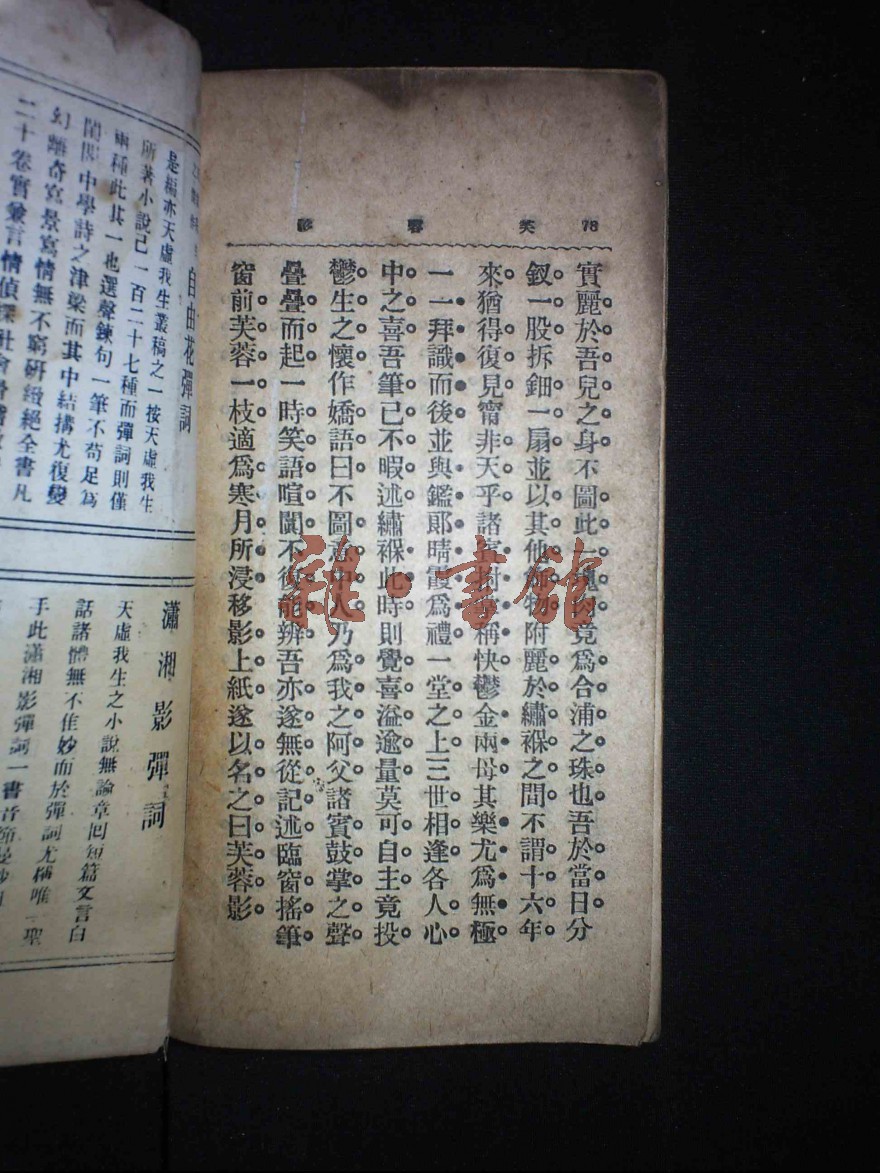 78 芙蓉影
實麗於吾兒之身不圖此一塊肉竟爲合浦之珠也吾於當日分
釵一股拆鈿一扇並以其他飾物附麗於繡褓之間不謂十六年
來猶得復見甯非天乎諸賓樹稱快鬱金兩母其樂尤爲無極
一一拜識而後並與鑑郞晴霞爲禮一堂之上三世相逢各人心
中之喜吾筆已不暇述繡褓此時則覺喜溢逾量莫可自主竟投
鬱生之懷作嬌語曰不圖意中人乃爲我之阿父諸賓鼓掌之聲
疊疊而起一時笑語喧闐不復能辨吾亦遂無從記述臨窗搖筆
窗前芙蓉一枝適爲寒月所浸移影上紙遂以名之曰芙蓉影
雜·書館
自由花彈詞
是編亦天虛我生叢稿之一按天虛我生
所著小說已一百二十七種而彈詞則僅
兩種此其一也選聲鍊句一筆不苟足爲
閨閣中學詩之津梁而其中結搆尤復變
幻離奇寫景寫情無不窮研緻絕全書凡
二十卷實兼言情偵探社會
瀟湘影彈詞
天虛我生之小說無論章回短篇文言白
話諸體無不佳妙而於彈詞尤稱唯一聖
手此瀟湘影彈詞一書音節